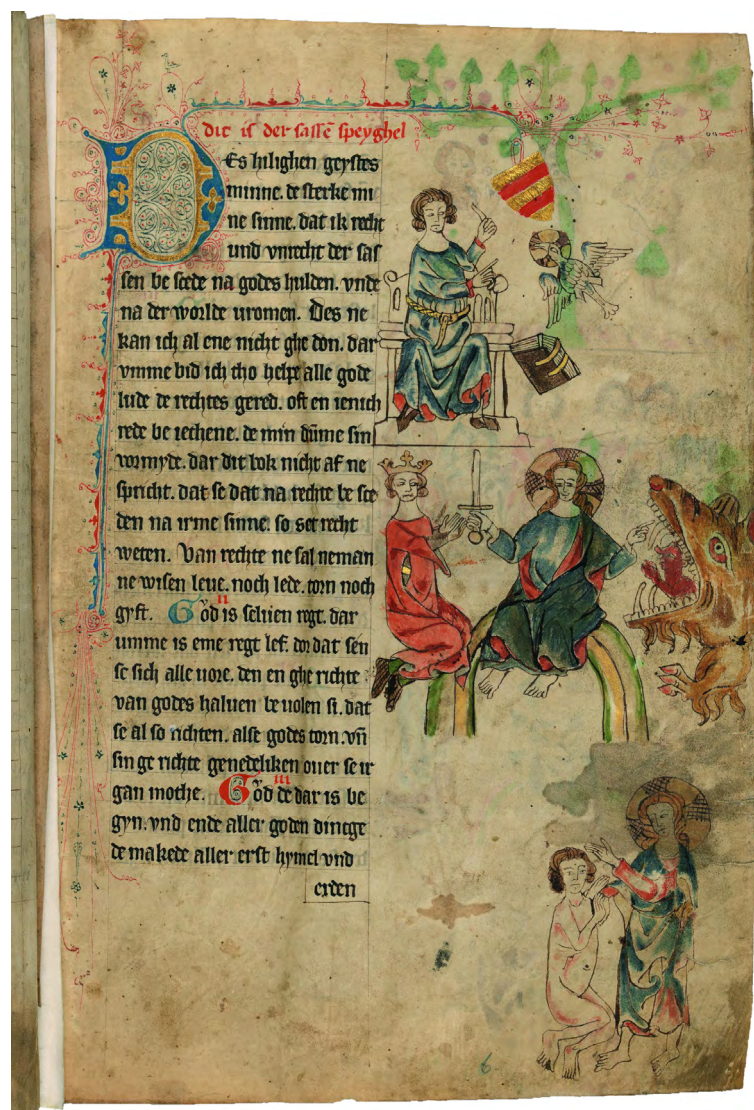 dit is der sassē speyghel
Des hilighen geystes
minne. de sterke mi
ne sinne. dat ik recht
und vnrecht der sas
sen be scede na godes hulden. vnde
na der worlde uromen. Des ne
kan ich al ene nicht ghe don. dar
vmme bid ich tho helpe alle gode
lude de rechtes gered. oft en ienich
rede be iechene. de min dūme sin
vormyde. dar dit bok nicht af ne
spricht. dat se dat na rechte be sce
den na irme sinne. so set recht
weten. Van rechte ne sal neman
ne wisen leue. noch lede. torn noch
gyft. II God is seluen regt. dar
umme is eme regt lef. dor dat sen
se sich alle uore. den en ghe richte
van godes haluen be uolen si. dat
se al so richten. alse godes torn. vn̄
sin ge richte genedeliken ouer se ir
gan mothe. III God de dar is be
gyn. vnd ende aller goden dincge
de makede aller erst hymel vnd
erden
6